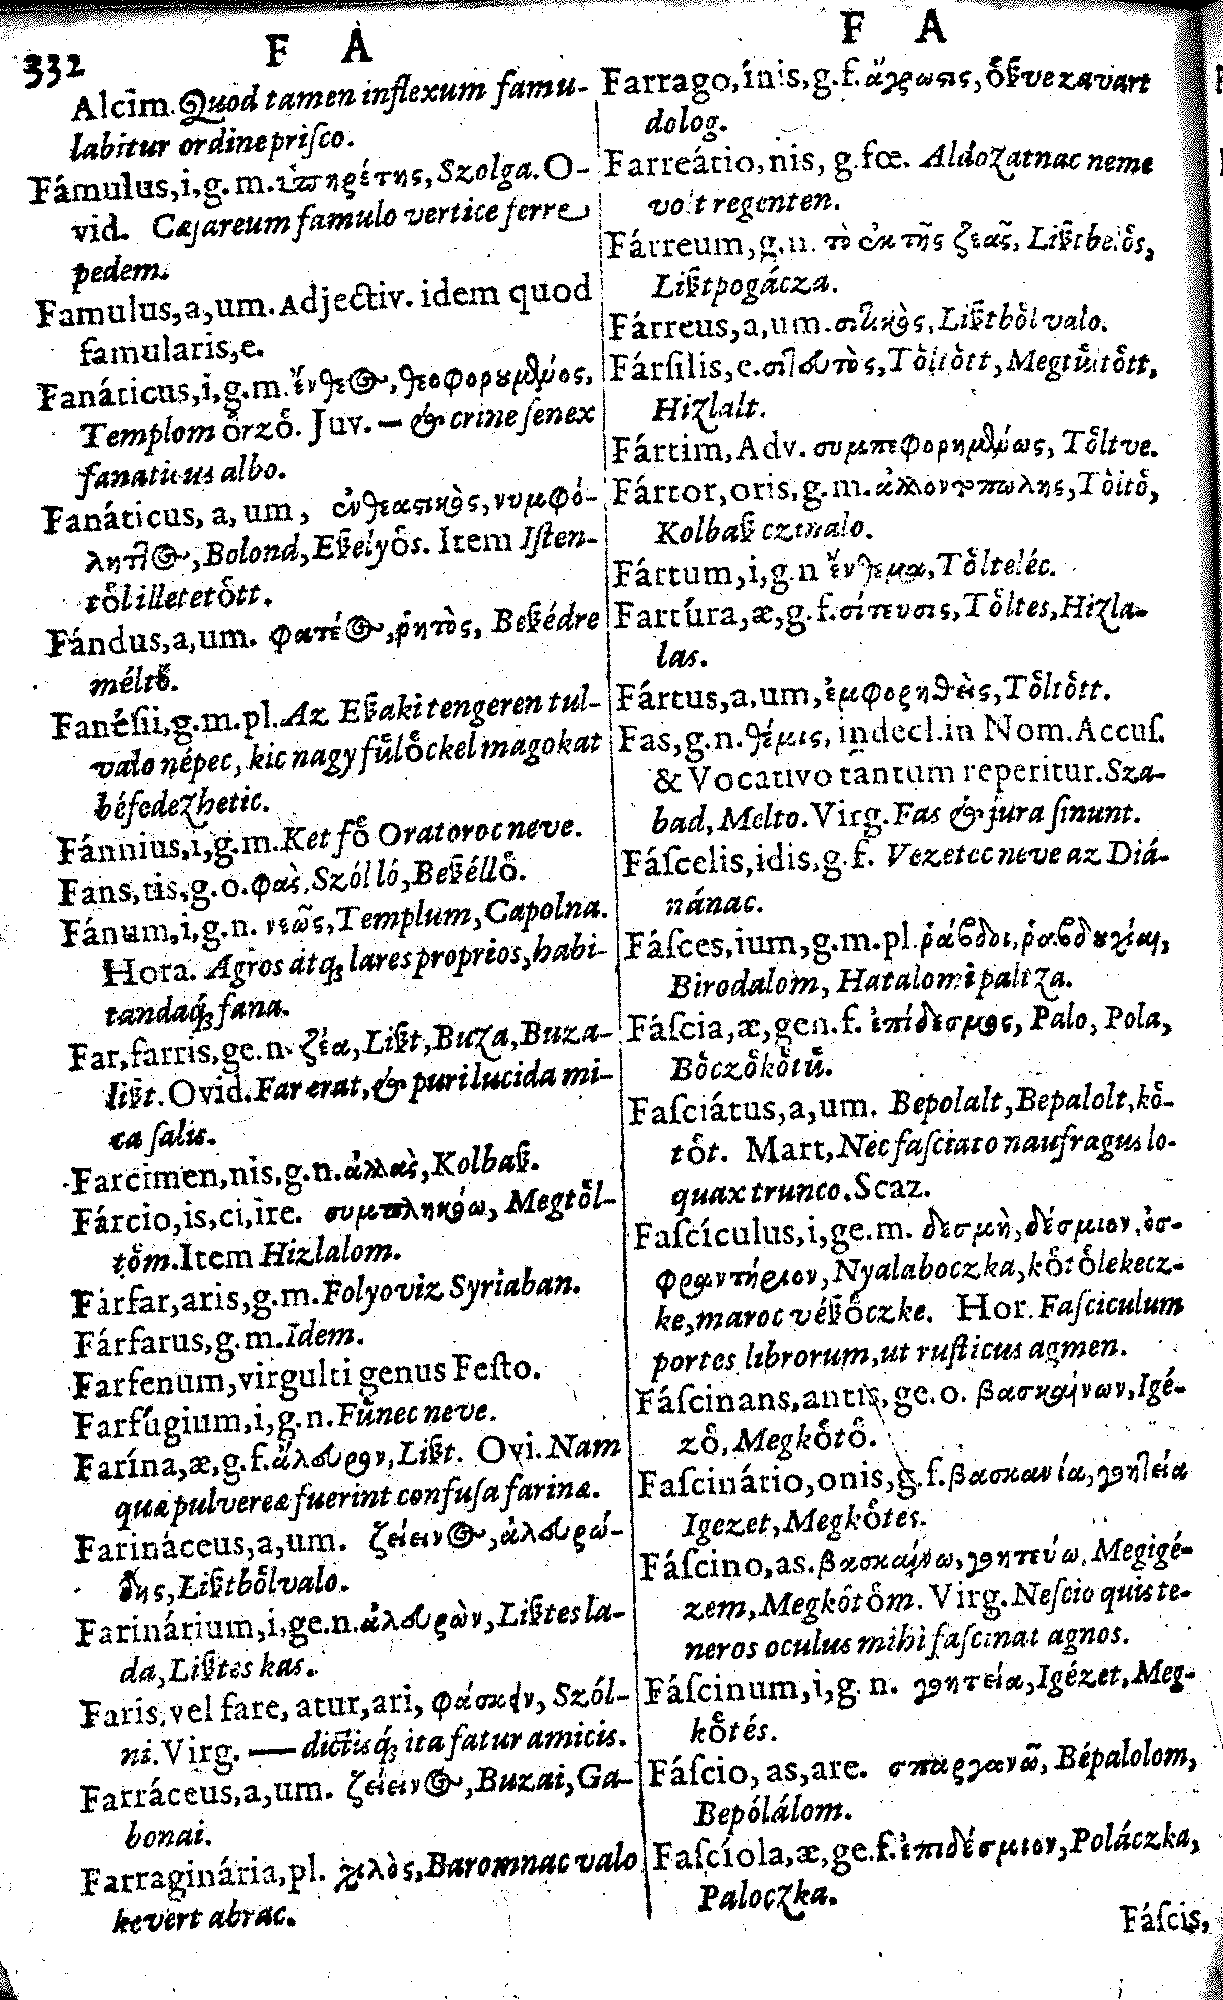 332
F A
Alcim. Quod tamen inflexum famu-
labitur ordine priſco.
Fámulus, i, g. m. ὑπηρέτης, Szolga. O-
vid. Cæſareum famulo vertice ferre
pedem.
Famulus, a, um. Adjectiv. idem quod
famularis, e.
Fanáticus, i, g. m. ἔνθεος, θεοφορούμενος,
Templom oͤrzoͤ. Juv. — & crine ſenex
fanaticus albo.
Fanáticus, a, um, ἐνθεαστικὸς, νυμφό-
ληπτος, Bolond, Eßelyoͤs. Item Iſten-
toͤl illetetoͤtt.
Fándus, a, um. φατέος, ῥητὸς, Beßédre
méltoͤ.
Fanésii, g. m. pl. Az Eßaki tengeren tul-
valo népec, kic nagy fuͤloͤckel magokat
béfedezhetic.
Fánnius, i, g. m. Ket foͤ Oratoroc neve.
Fans, tis, g. o. φὰς, Szólló, Beßélloͤ.
Fánum, i, g. n. νεῶς, Templum, Capolna.
Hora. Agros átq; lares proprios, habi-
tandaq; fana.
Far, farris, ge. n. ζέα, Lißt, Buza, Buza-
lißt. Ovid. Far erat, & puri lucida mi-
ca ſalis.
Farcimen, nis, g. n. ἀλλὰς, Kolbaß.
Fárcio, is, ci, ire. συμπληρόω, Megtoͤl-
toͤm. Item Hizlalom.
Fárfar, aris, g. m. Folyoviz Syriaban.
Fárfarus, g. m. Idem.
Farfenum, virgulti genus Feſto.
Farfúgium, i, g. n. Fuͤnec neve.
Farína, æ, g. f. ἄλευρον, Lißt. Ovi. Nam
quæ pulvereæ fuerint confuſa farinæ.
Farináceus, a, um. ζέϊνος, ἀλευρώ-
δης, Lißtboͤl valo.
Farinárium, i, ge. n. ἀλευρὼν, Lißtes la-
da, Lißtes kas.
Faris, vel fare, atur, ari, φάσκειν, Szól-
ni. Virg. — dictisq; ita fatur amicis.
Farráceus, a, um. ζέϊνος, Buzai, Ga-
bonai.
Farraginária, pl. χιλὸς, Baromnac valo
kevert abrac.
F A
Farrago, inis, g. f. ἄγρωστις, oͤßve zavart
dolog.
Farreátio, nis, g. fœ. Aldozatnac neme
volt regenten.
Fárreum, g. n. τὸ ἐκ τῆς ζεᾶς, Lißtbeloͤs,
Lißtpogácza.
Fárreus, a, um. σιτικὸς, Lißtboͤl valo.
Fársilis, e. σιτευτὸς, Toͤltoͤtt, Megtuͤltoͤtt,
Hizlalt.
Fártim, Adv. συμπεφορημένως, Toͤltve.
Fártor, oris, g. m. ἀλλαντοπώλης, Toͤltoͤ,
Kolbaß czinalo.
Fártum, i, g. n ἔνθεμα, Toͤlteléc.
Fartúra, æ, g. f. σίτευσις, Toͤltes, Hizla-
las.
Fártus, a, um, ἐμφορηθεὶς, Toͤltoͤtt.
Fas, g. n. θέμις, indecl. in Nom. Accuſ.
& Vocativo tantum reperitur. Sza-
bad, Melto. Virg. Fas & jura ſinunt.
Fáſcelis, idis, g. f. Vezetec neve az Diá-
nánac.
Fáſces, ium, g. m. pl. ῥάβδοι, ῥαβδουχίαι,
Birodalom, Hatalomi paltza.
Fáſcia, æ, gen. f. ἐπίδεσμος, Palo, Pola,
Boͤczoͤkoͤtuͤ.
Faſciátus, a, um. Bepolalt, Bepalolt, koͤ-
toͤt. Mart, Nec faſciato naufragus lo-
quax trunco. Scaz.
Faſcículus, i, ge. m. δεσμὴ, δέσμιον, ὀσ-
φραντήριον, Nyalaboczka, koͤtoͤlekecz-
ke, maroc véßoͤczke. Hor. Faſciculum
portes librorum, ut ruſticus agmen.
Fáſcinans, antis, ge. o. βασκαίνων, Igé-
zoͤ, Megkoͤtoͤ.
Faſcinátio, onis, g. f. βασκανία, γοητεία
Igezet, Megkoͤtes.
Fáſcino, as. βασκαίνω, γοητεύω, Megigé-
zem, Megkótoͤm. Virg. Neſcio quis te-
neros oculus mihi faſcinat agnos.
Fáſcinum, i, g. n. γοητεία, Igézet, Meg-
koͤtés.
Fáſcio, as, are. σπαργανῶ, Bépalolom,
Bepólálom.
Faſcíola, æ, ge. f. ἐπιδέσμιον, Poláczka,
Paloczka.
Fáſcis,